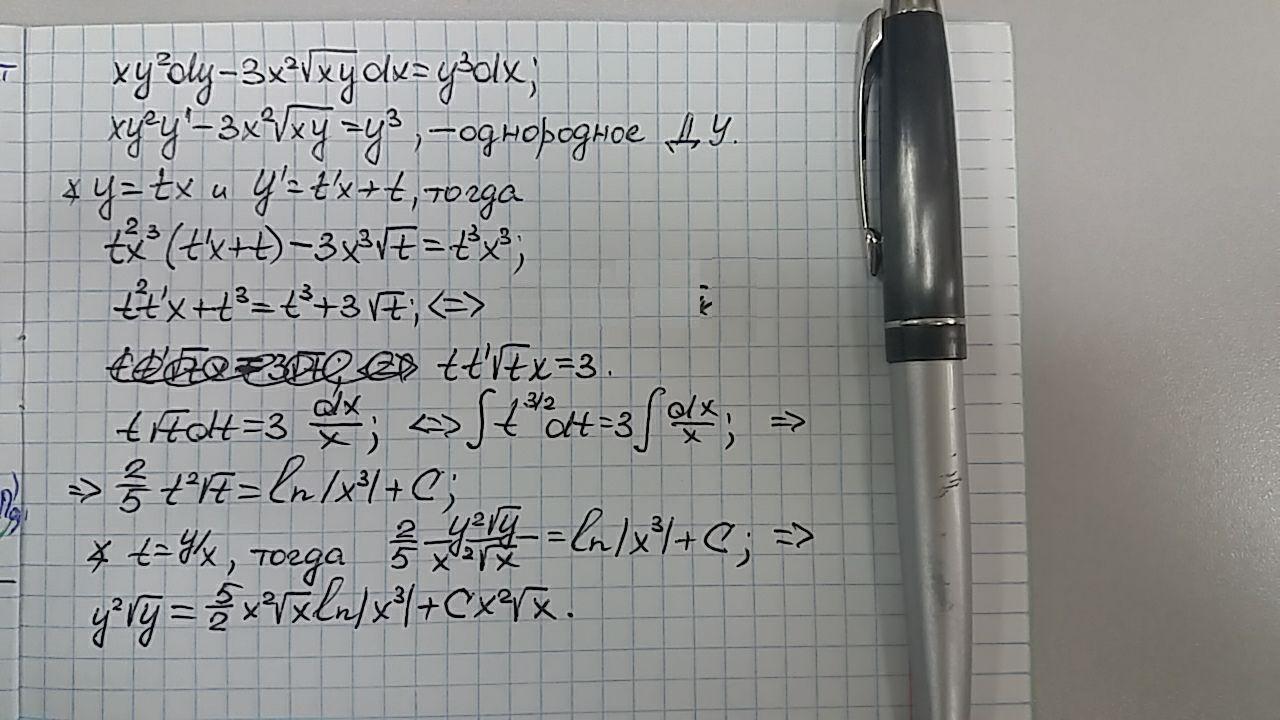 xy²dy-3x²√xy dx=y³dx;
xy²y'-3x²√xy=y³, -однородное Д.У.
* y=tx и y'=t'x+t, тогда
t²x³(t'x+t)-3x³√t=t³x³;
t²t'x+t³=t³+3√t; <=>
tt'√t x=3.
t√t dt=3 dx/x; <=> ∫t^3/2 dt=3∫dx/x; =>
=> 2/5 t²√t=ln|x³|+C;
* t=y/x, тогда 2/5 y²√y/x²√x=ln|x³|+C; =>
y²√y=5/2 x²√x ln|x³|+Cx²√x.